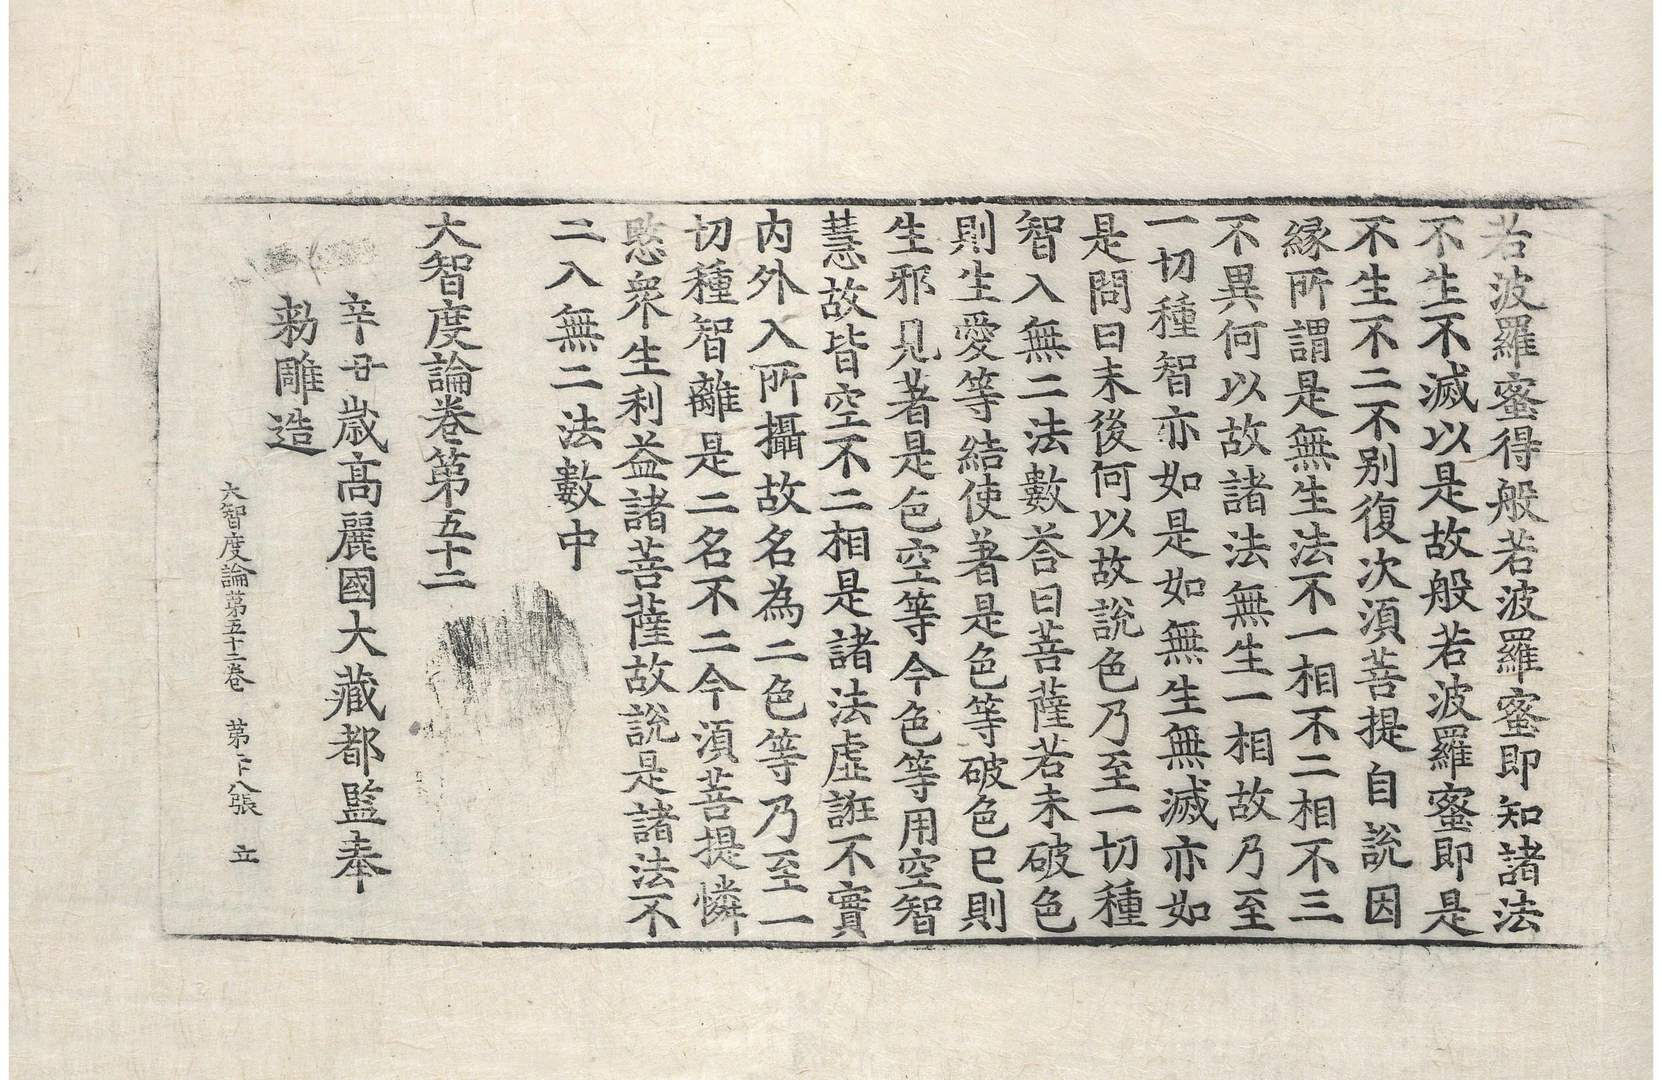 若波羅蜜得般若波羅蜜即知諸法
不生不滅以是故般若波羅蜜即是
不生不二不別復次湏菩提自說因
緣所謂是無生法不一相不二相不三
不異何以故諸法無生一相故乃至
一切種智亦如是如無生無滅亦如
是問曰未後何以故說色乃至一切種
智入無二法數荅曰菩薩若未破色
則生愛等結使著是色等破色已則
生邪見著是色空等今色等用空智
慧故皆空不二相是諸法虛誑不實
內外入所攝故名為二色等乃至一
切種智離是二名不二今湏菩提憐
愍衆生利益諸菩薩故說是諸法不
二入無二法數中
大智度論卷第五十二
辛丑歲高麗國大藏都監奉
勅雕造
大智度論第五十二卷 第二十八張 立